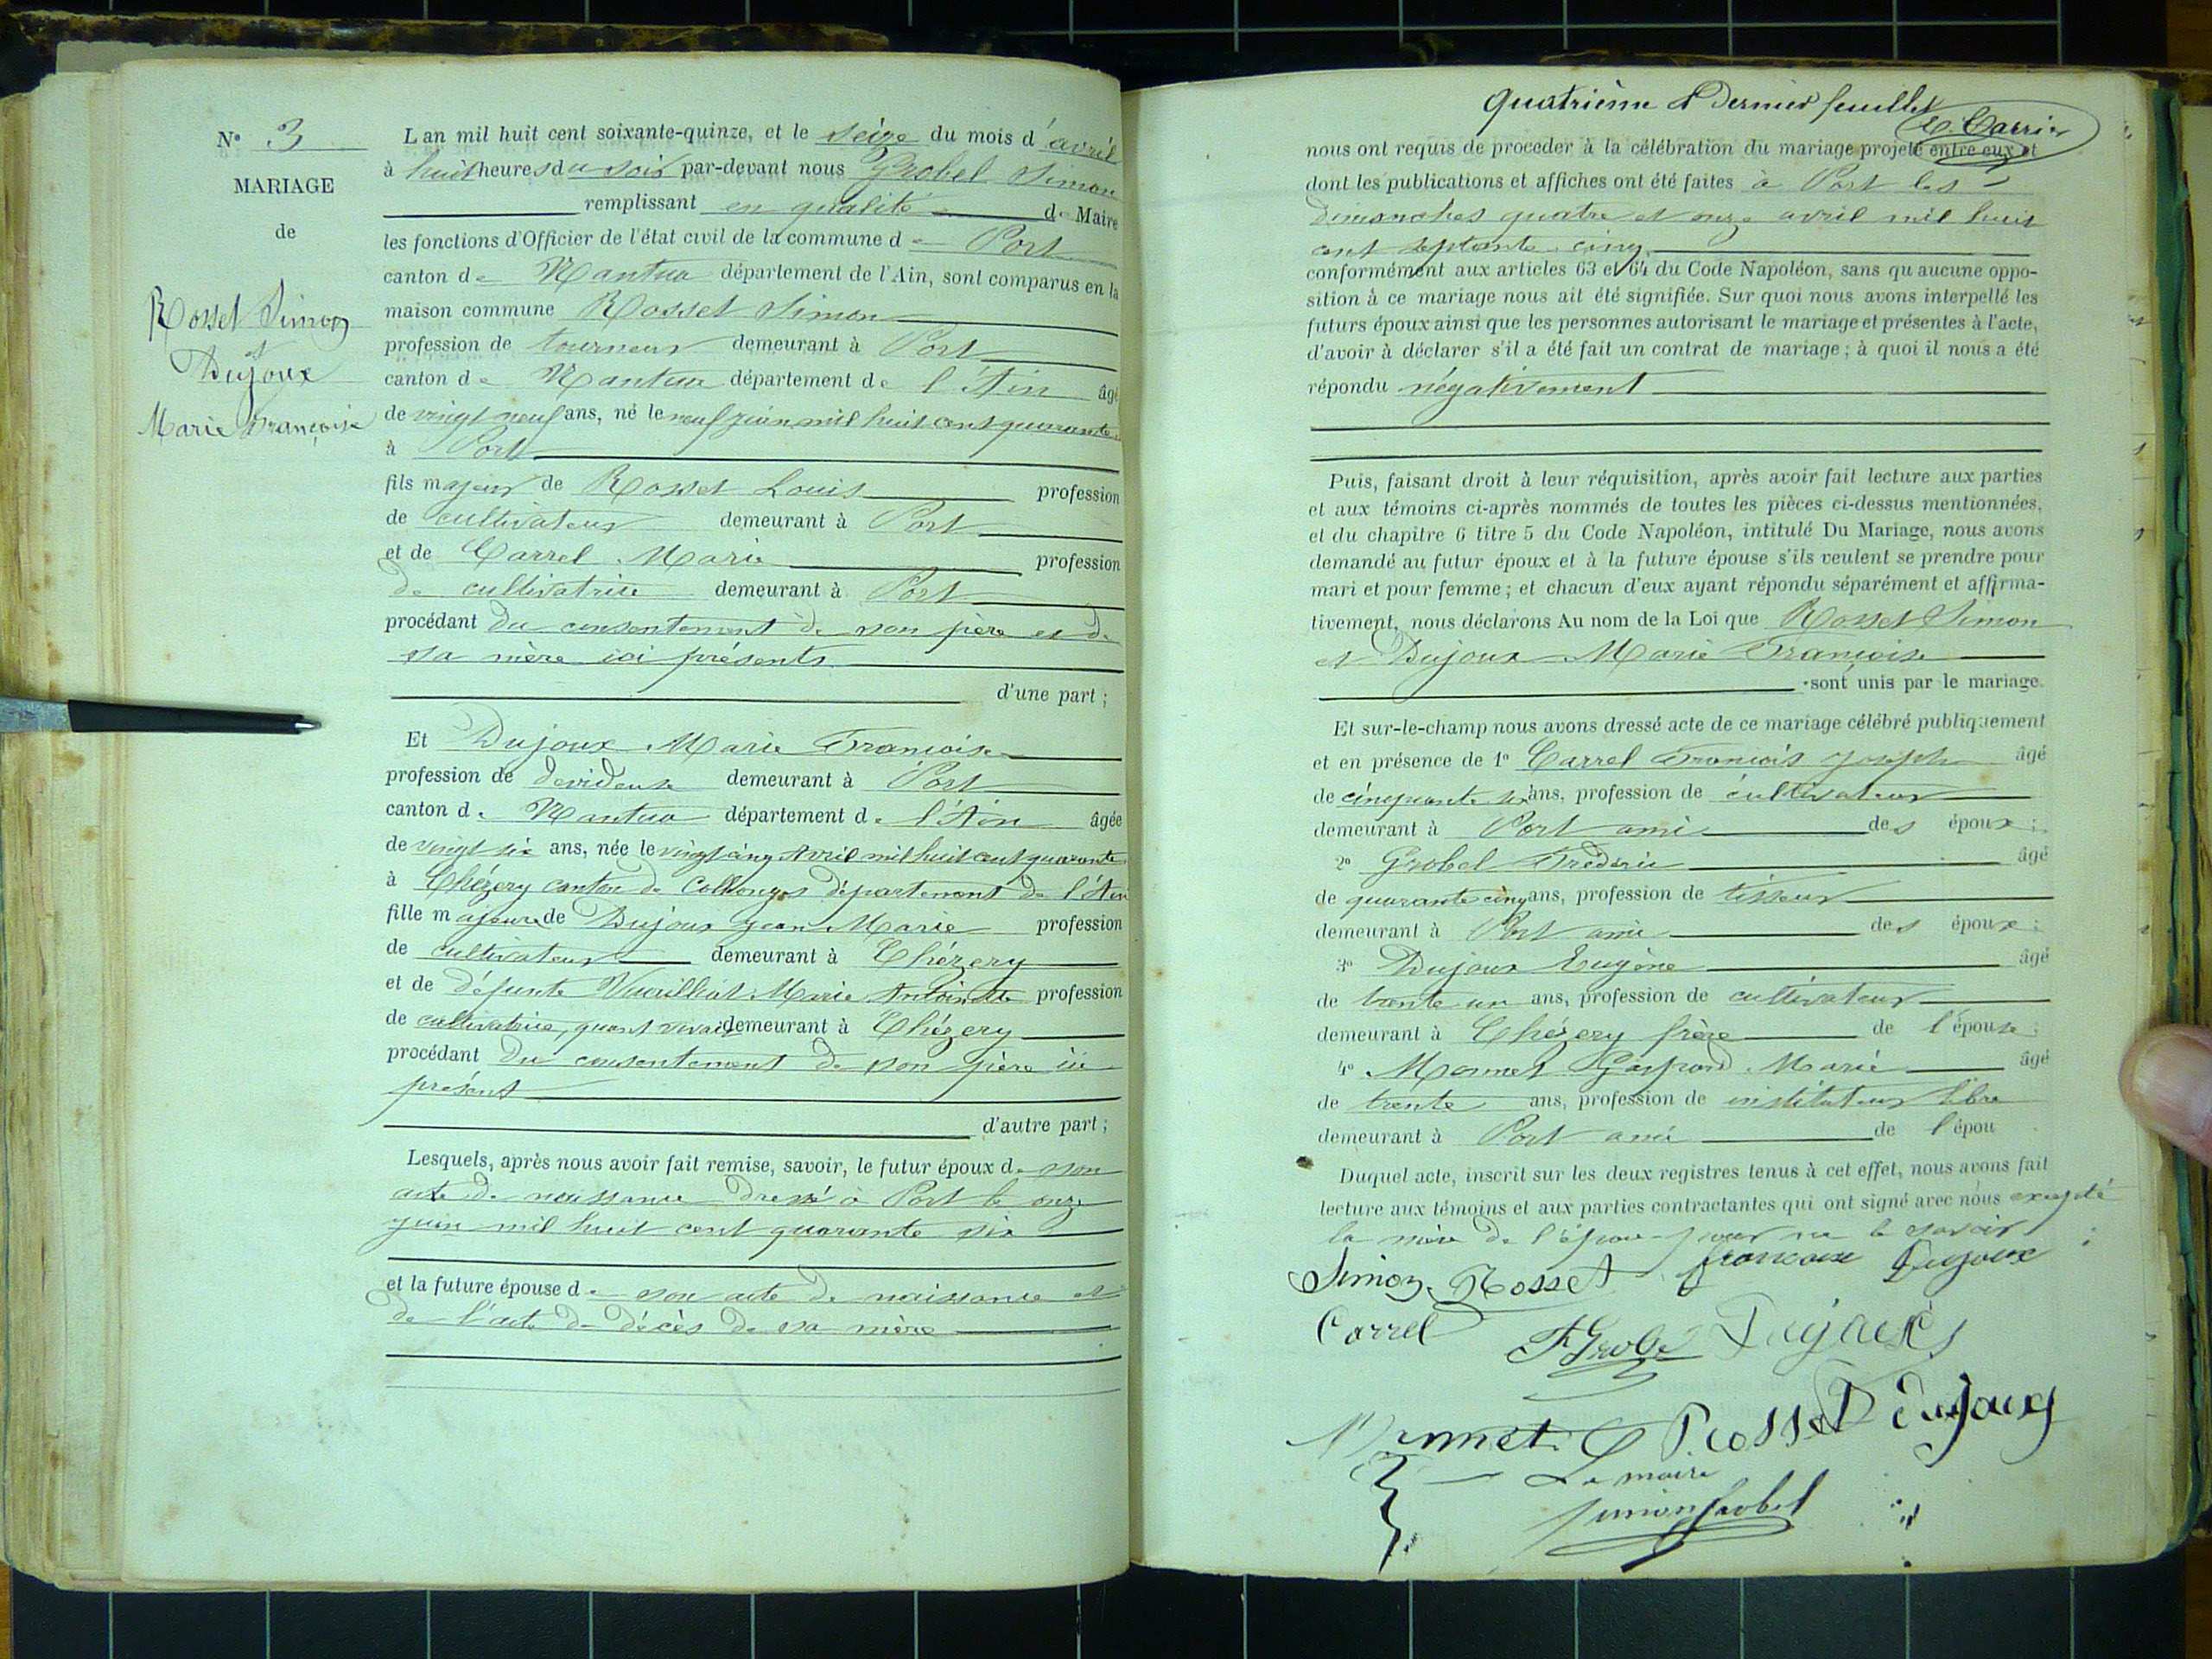 N° 3
MARIAGE
de
Rosset Simon
et
Dujoux
Marie Françoise
L'an mil huit cent soixante-quinze, et le seize du mois d'avril
à huit heures du soir par-devant nous Grobel Simon
remplissant en qualité de Maire
les fonctions d'Officier de l'état civil de la commune de Port
canton de Nantua département de l'Ain, sont comparus en la
maison commune Rosset Simon
profession de tourneur demeurant à Port
canton de Nantua département de l'Ain âgé
de vingt neuf ans, né le neuf juin mil huit cent quarante
à Port
fils majeur de Rosset Louis profession
de cultivateur demeurant à Port
et de Carrel Marie profession
de cultivatrice demeurant à Port
procédant du consentement de son père et de
sa mère ici présents
d'une part;
Et Dujoux Marie Françoise
profession de devideuse demeurant à Port
canton de Nantua département de l'Ain âgée
de vingt six ans, née le vingt cinq Avril mil huit cent quarante
à Chézery canton de Collonges département de l'Ain
fille majeure de Dujoux Jean Marie profession
de cultivateur demeurant à Chézery
et de défunte Vuailliat Marie Antoinette profession
de cultivatrice, quant vivait demeurant à Chézery
procédant du consentement de son père ici
présent
d'autre part;
Lesquels, après nous avoir fait remise, savoir, le futur époux de son
acte de naissance dressé à Port le onze
juin mil huit cent quarante six
et la future épouse de son acte de naissance et
de l'acte de décès de sa mère
Quatrième et Dernier feuillet
C. Carrier
nous ont requis de procéder à la célébration du mariage projeté entre eux et
dont les publications et affiches ont été faites à Port les
dimanches quatre et onze avril mil huit
cent septante-cinq
conformément aux articles 63 et 64 du Code Napoléon, sans qu'aucune oppo-
sition à ce mariage nous ait été signifiée. Sur quoi nous avons interpellé les
futurs époux ainsi que les personnes autorisant le mariage et présentes à l'acte,
d'avoir à déclarer s'il a été fait un contrat de mariage; à quoi il nous a été
répondu négativement
Puis, faisant droit à leur réquisition, après avoir fait lecture aux parties
et aux témoins ci-après nommés de toutes les pièces ci-dessus mentionnées,
et du chapitre 6 titre 5 du Code Napoléon, intitulé Du Mariage, nous avons
demandé au futur époux et à la future épouse s'ils veulent se prendre pour
mari et pour femme; et chacun d'eux ayant répondu séparément et affirma-
tivement, nous déclarons Au nom de la Loi que Rosset Simon
et Dujoux Marie Françoise
sont unis par le mariage.
Et sur-le-champ nous avons dressé acte de ce mariage célébré publiquement
et en présence de 1° Carrel François Joseph âgé
de cinquante six ans, profession de cultivateur
demeurant à Port ami des époux;
2° Grobel Frédéric âgé
de quarante cinq ans, profession de tisseur
demeurant à Port ami des époux;
3° Dujoux Eugène âgé
de trente un ans, profession de cultivateur
demeurant à Chézery frère de l'épouse;
4° Monnet Gaspard Marie âgé
de trente ans, profession de instituteur libre
demeurant à Port ami de l'épou
Duquel acte, inscrit sur les deux registres tenus à cet effet, nous avons fait
lecture aux témoins et aux parties contractantes qui ont signé avec nous excepté
la mère de l'époux pour ne le savoir
Simon Rosset francoise Dujoux
Carrel F Grobel Dujoux
Monnet L Rosset Dujoux
Le maire
Simon Grobel